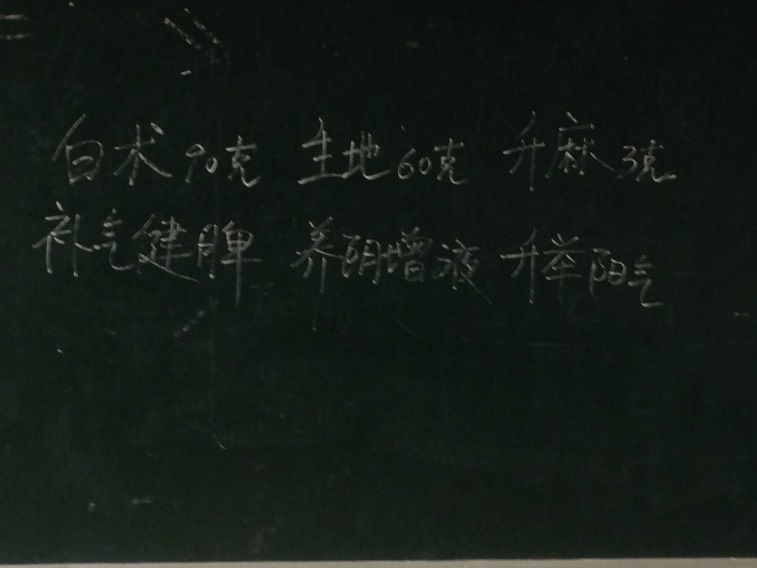 白术90克 生地60克 升麻3克
补气健脾 养阴增液 升举阳气